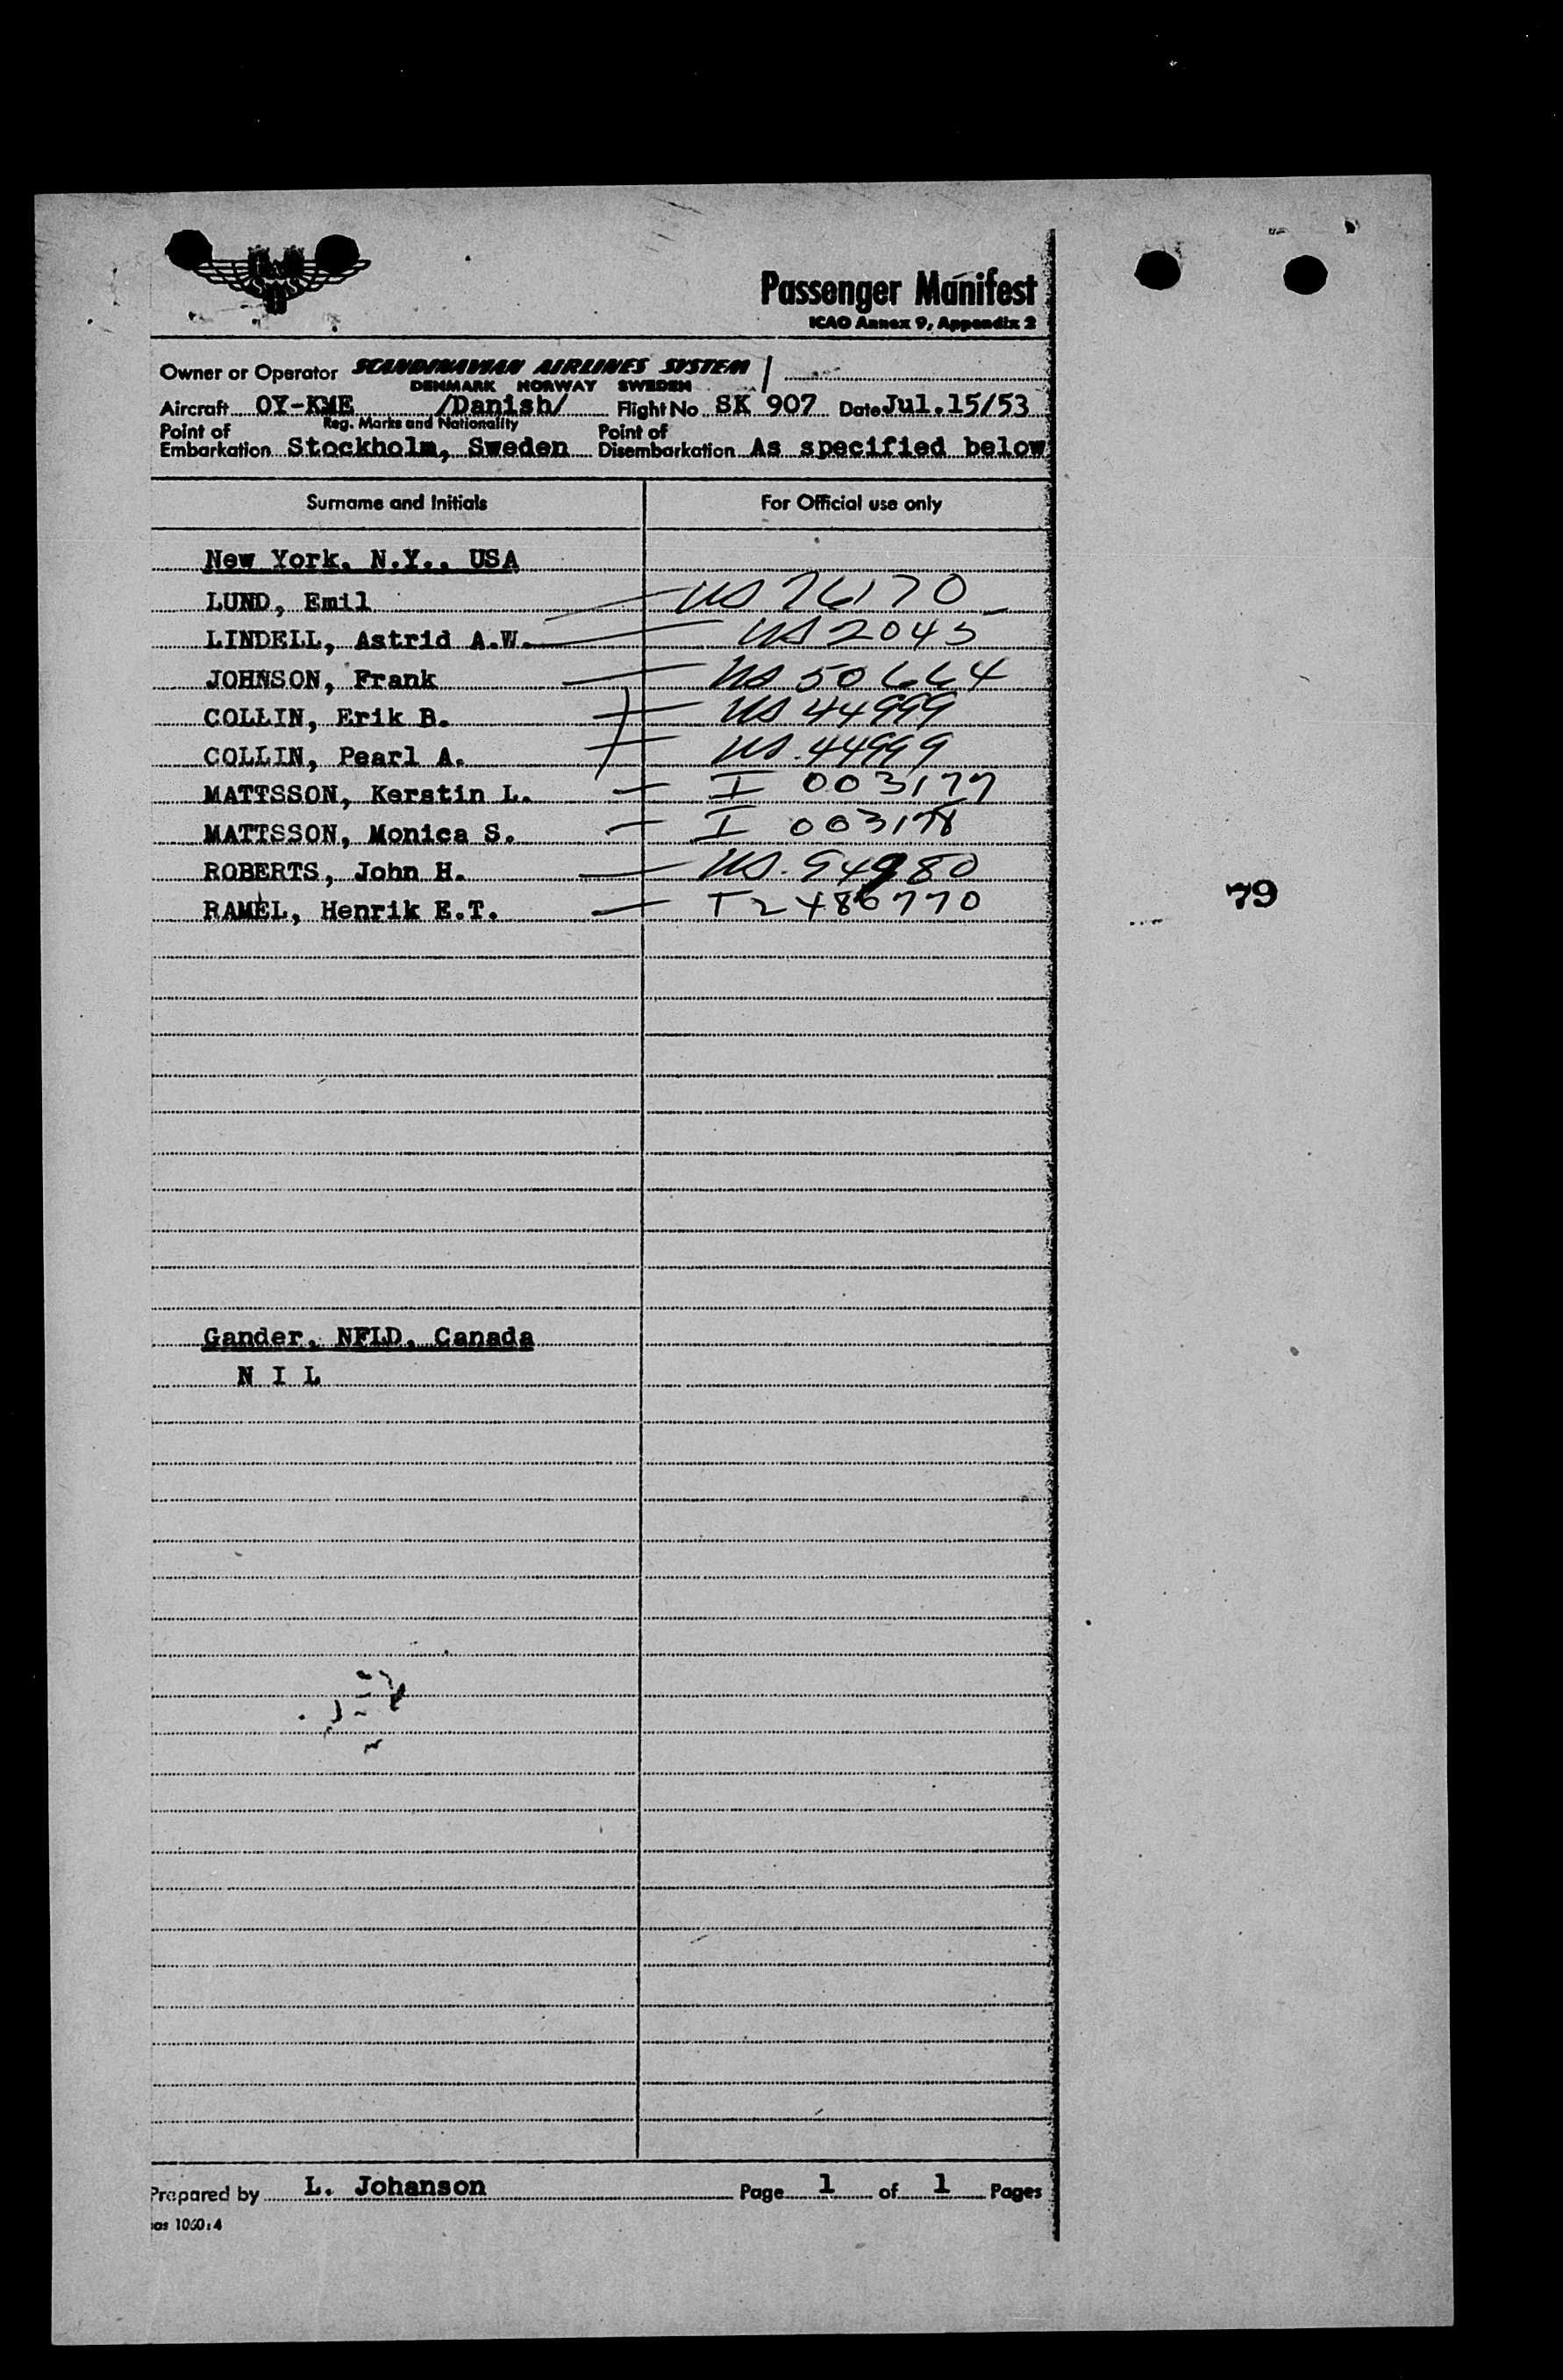 SAS
Passenger Manifest
ICAO Annex 9, Appendix 2
Owner or Operator SCANDINAVIAN AIRLINES SYSTEM
DENMARK NORWAY SWEDEN
Aircraft OY-KME /Danish/ Flight No SK 907 Date Jul.15/53
Reg. Marks and Nationality
Point of Embarkation Stockholm, Sweden Point of Disembarkation As specified below
Surname and Initials For Official use only
New York, N.Y., USA
LUND, Emil US 76170
LINDELL, Astrid A.W. US 2045
JOHNSON, Frank US 50664
COLLIN, Erik B. US 44999
COLLIN, Pearl A. US 44999
MATTSSON, Kerstin L. I 003177
MATTSSON, Monica S. I 003178
ROBERTS, John H. US
RAMEL, Henrik E.T.
79
Gander, NFLD, Canada
N I L
Prepared by L. Johanson Page 1 of 1 Pages
sas 1060:4